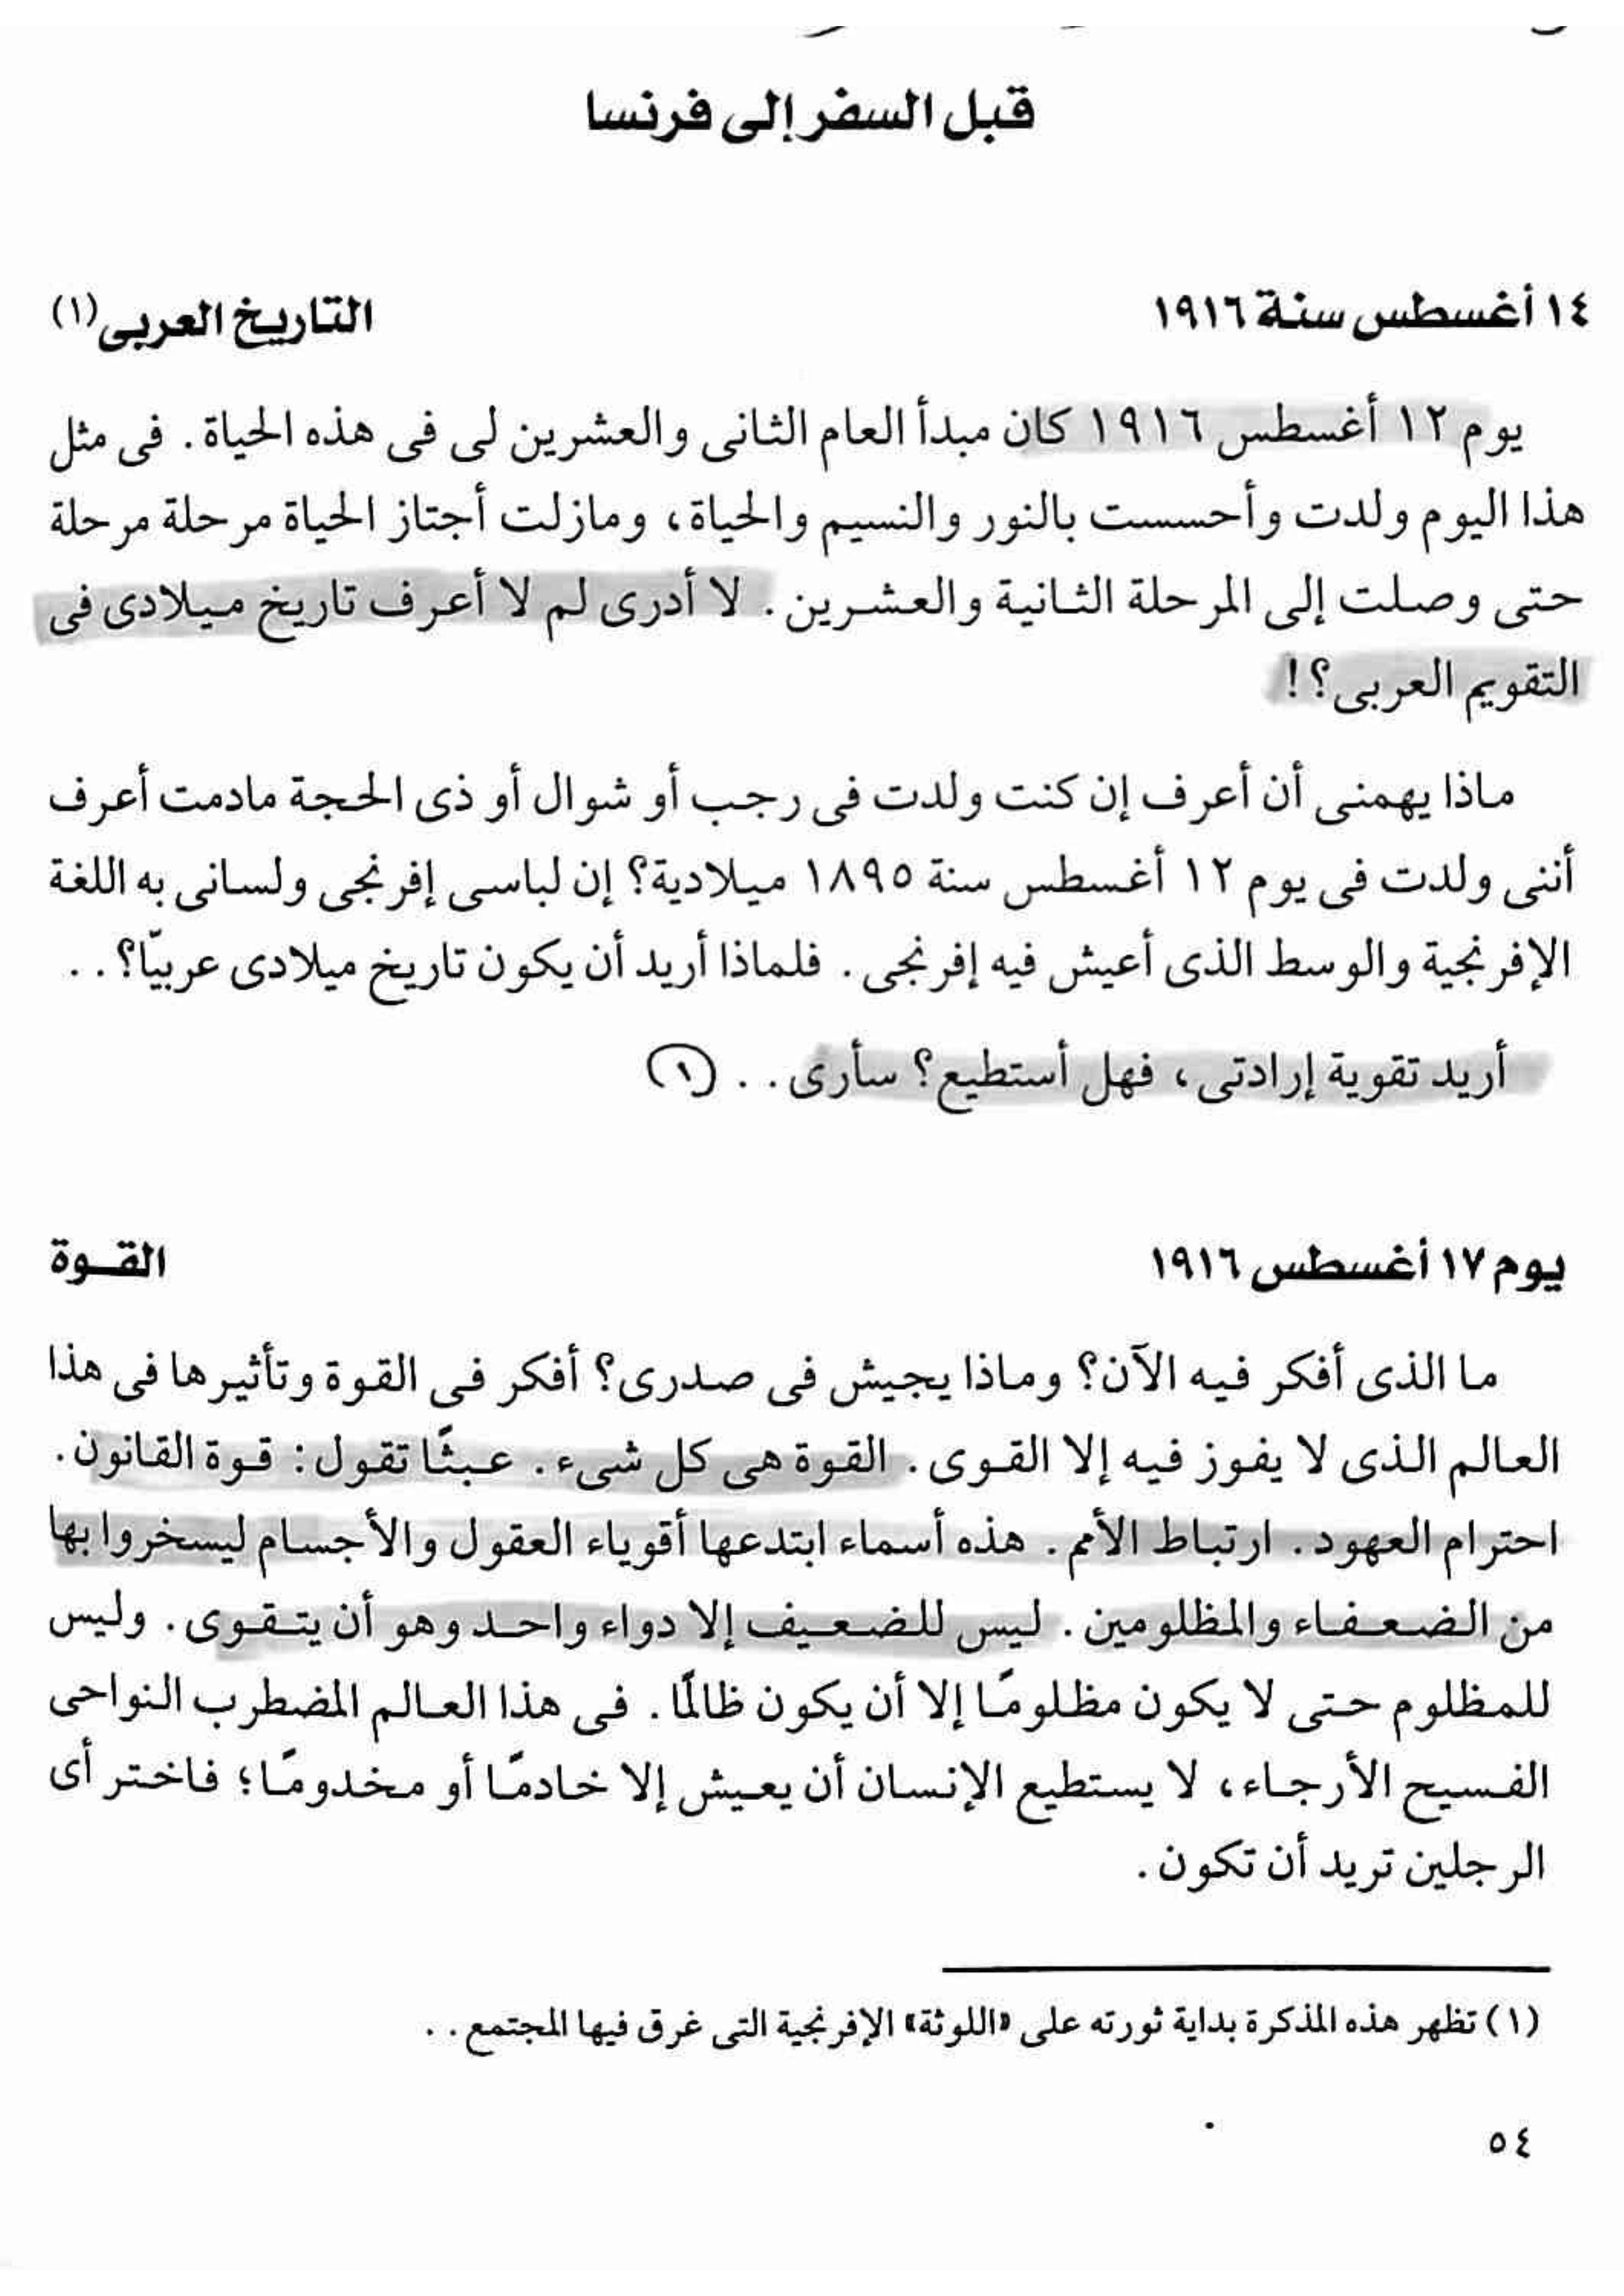 قبل السفر إلى فرنسا
١٤ أغسطس سنة ١٩١٦ التاريخ العربى (١)
يوم ١٢ أغسطس ١٩١٦ كان مبدأ العام الثانى والعشرين لى فى هذه الحياة. فى مثل
هذا اليوم ولدت وأحسست بالنور والنسيم والحياة، ومازلت أجتاز الحياة مرحلة مرحلة
حتى وصلت إلى المرحلة الثانية والعشرين. لا أدرى لم لا أعرف تاريخ ميلادى فى
التقويم العربى؟!
ماذا يهمنى أن أعرف إن كنت ولدت فى رجب أو شوال أو ذى الحجة مادمت أعرف
أننى ولدت فى يوم ١٢ أغسطس سنة ١٨٩٥ ميلادية؟ إن لباسى إفرنجى ولسانى به اللغة
الإفرنجية والوسط الذى أعيش فيه إفرنجى. فلماذا أريد أن يكون تاريخ ميلادى عربيّا؟..
أريد تقوية إرادتى، فهل أستطيع؟ سأرى.. (١)
يوم ١٧ أغسطس ١٩١٦ القوة
ما الذى أفكر فيه الآن؟ وماذا يجيش فى صدرى؟ أفكر فى القوة وتأثيرها فى هذا
العالم الذى لا يفوز فيه إلا القوى. القوة هى كل شىء. عبثًا تقول: قوة القانون.
احترام العهود. ارتباط الأمم. هذه أسماء ابتدعها أقوياء العقول والأجسام ليسخروا بها
من الضعفاء والمظلومين. ليس للضعيف إلا دواء واحد وهو أن يتقوى. وليس
للمظلوم حتى لا يكون مظلومًا إلا أن يكون ظالمًا. فى هذا العالم المضطرب النواحى
الفسيح الأرجاء، لا يستطيع الإنسان أن يعيش إلا خادمًا أو مخدومًا؛ فاختر أى
الرجلين تريد أن تكون.
(١) تظهر هذه المذكرة بداية ثورته على «اللوثة» الإفرنجية التى غرق فيها المجتمع..
٥٤